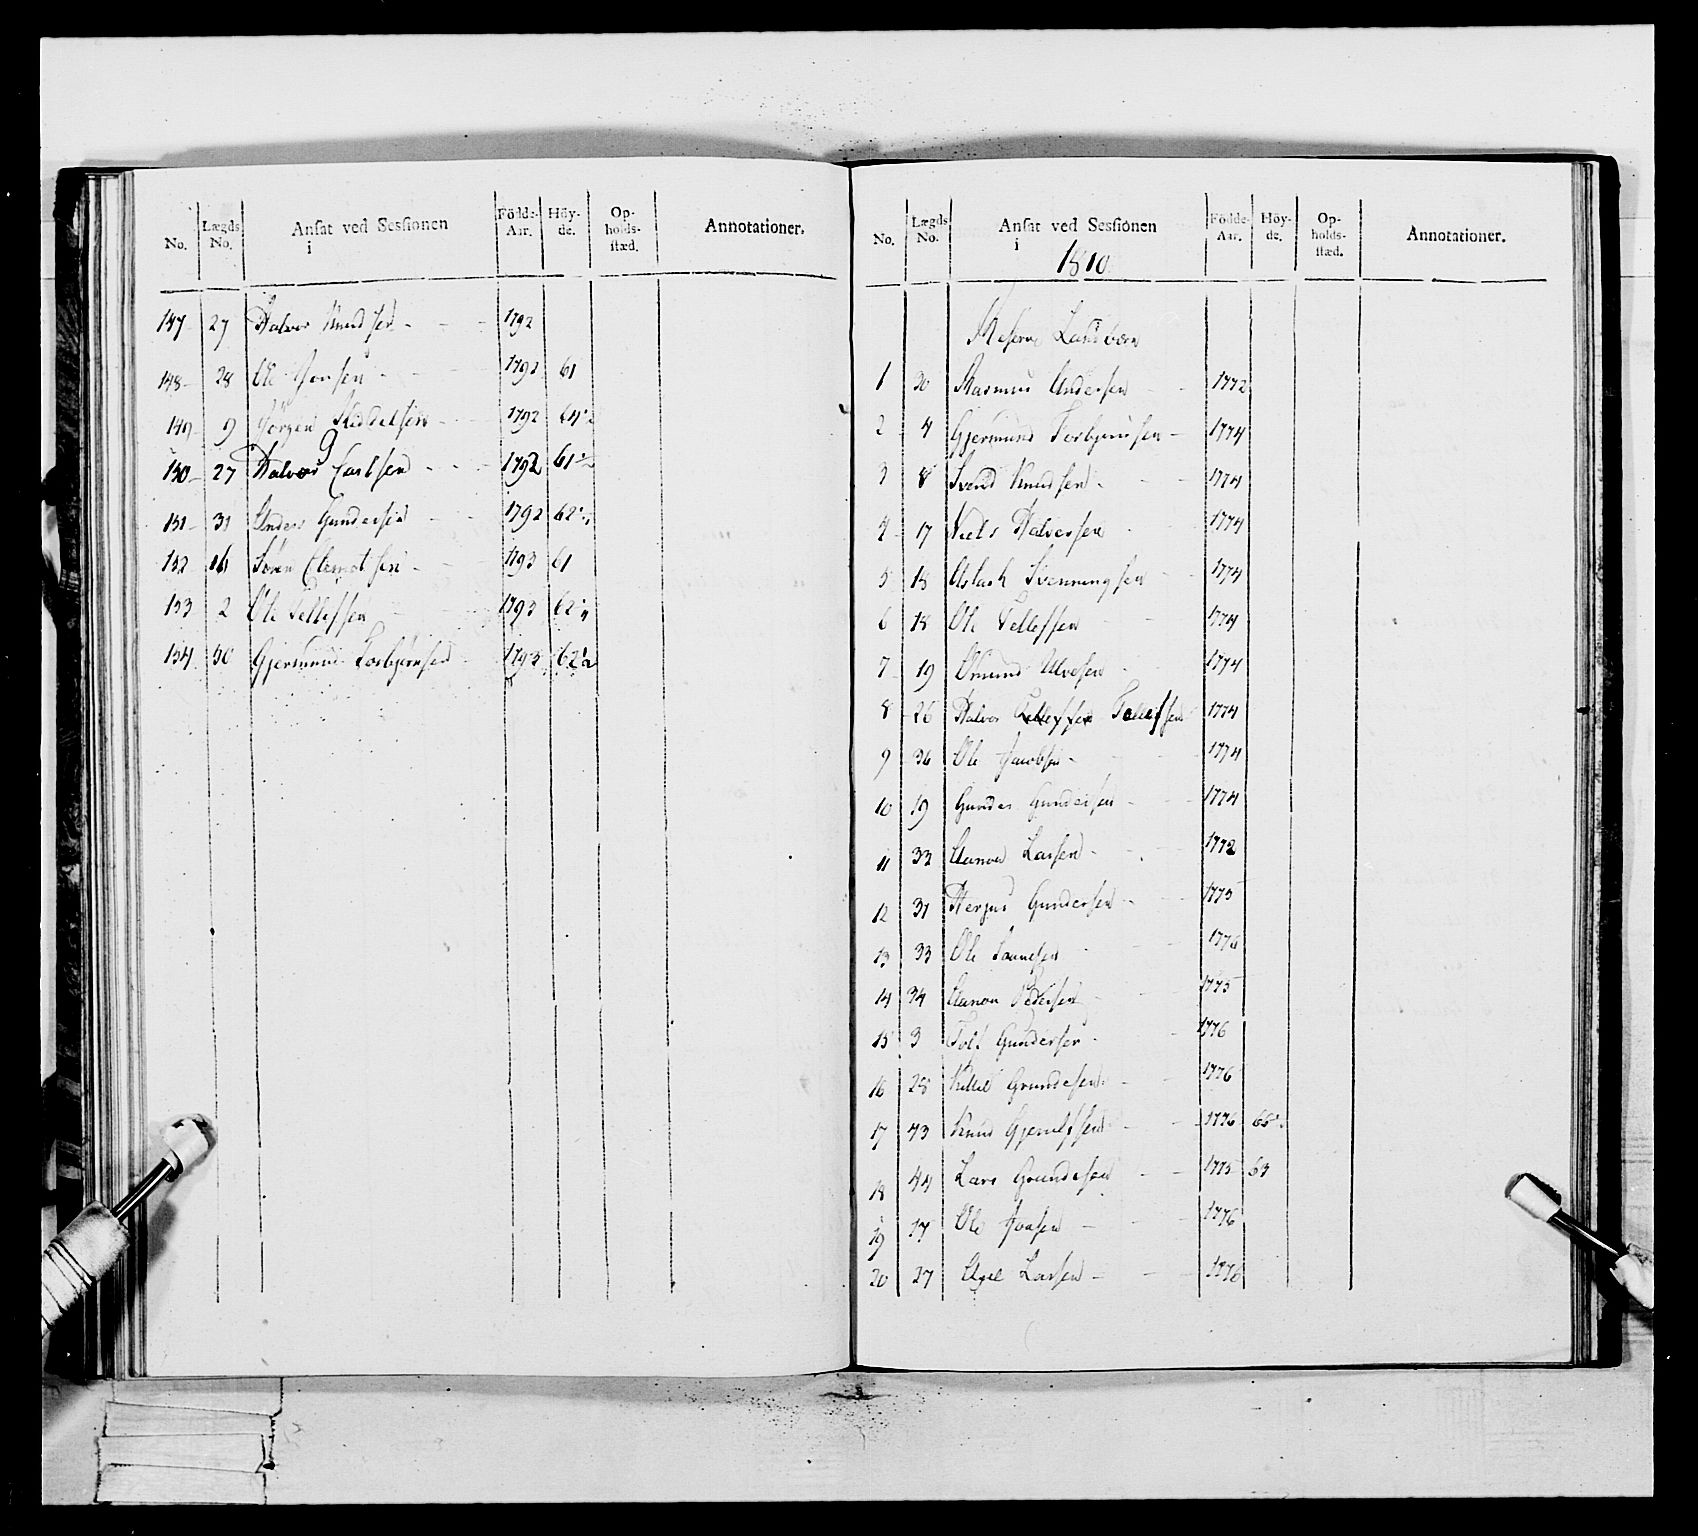 No. Lægds No. Ansat ved Sessionen i Födde-Aar. Höy-de. Op-holds-stæd. Annotationer.
147 27 Halvor Knudsen 1792
148 28 Ole Jonsen 1792 61
149 9 Jörgen Kiddelsen 1792 64 1/2
150 27 Halvor Carlsen 1792 61 1/2
151 31 Anders Gundersen 1792 62
152 16 Sören Clemetsen 1793 61
153 2 Ole Tellefsen 1793 62
154 30 Gjermund Torbjörnsen 1793 62 1/2
No. Lægds No. Ansat ved Sessionen i Födde-Aar. Höy-de. Op-holds-stæd. Annotationer.
1810
Reserve Landværn
1 30 Rasmus Andersen 1772
2 4 Gjermund Torbjörnsen 1774
3 8 Svend Knudsen 1774
4 17 Niels Halvorsen 1774
5 18 Aslach Svenningsen 1774
6 18 Ole Tellefsen 1774
7 19 Omund Ulvesen 1774
8 26 Halvor Tellefsen 1774
9 36 Ole Jacobsen 1774
10 19 Gunder Gundersen 1774
11 33 Aanon Larsen 1772
12 31 Terjus Gundersen 1775
13 33 Ole 1776
14 34 Aanon Pedersen 1775
15 3 Gundersen 1776
16 28 Kittel Grundesen 1776
17 43 Knud Gjerulfsen 1776 65
18 44 Lars Grundesen 1775 63
19 17 Ole Jonsen 1776
20 27 Larsen 1776